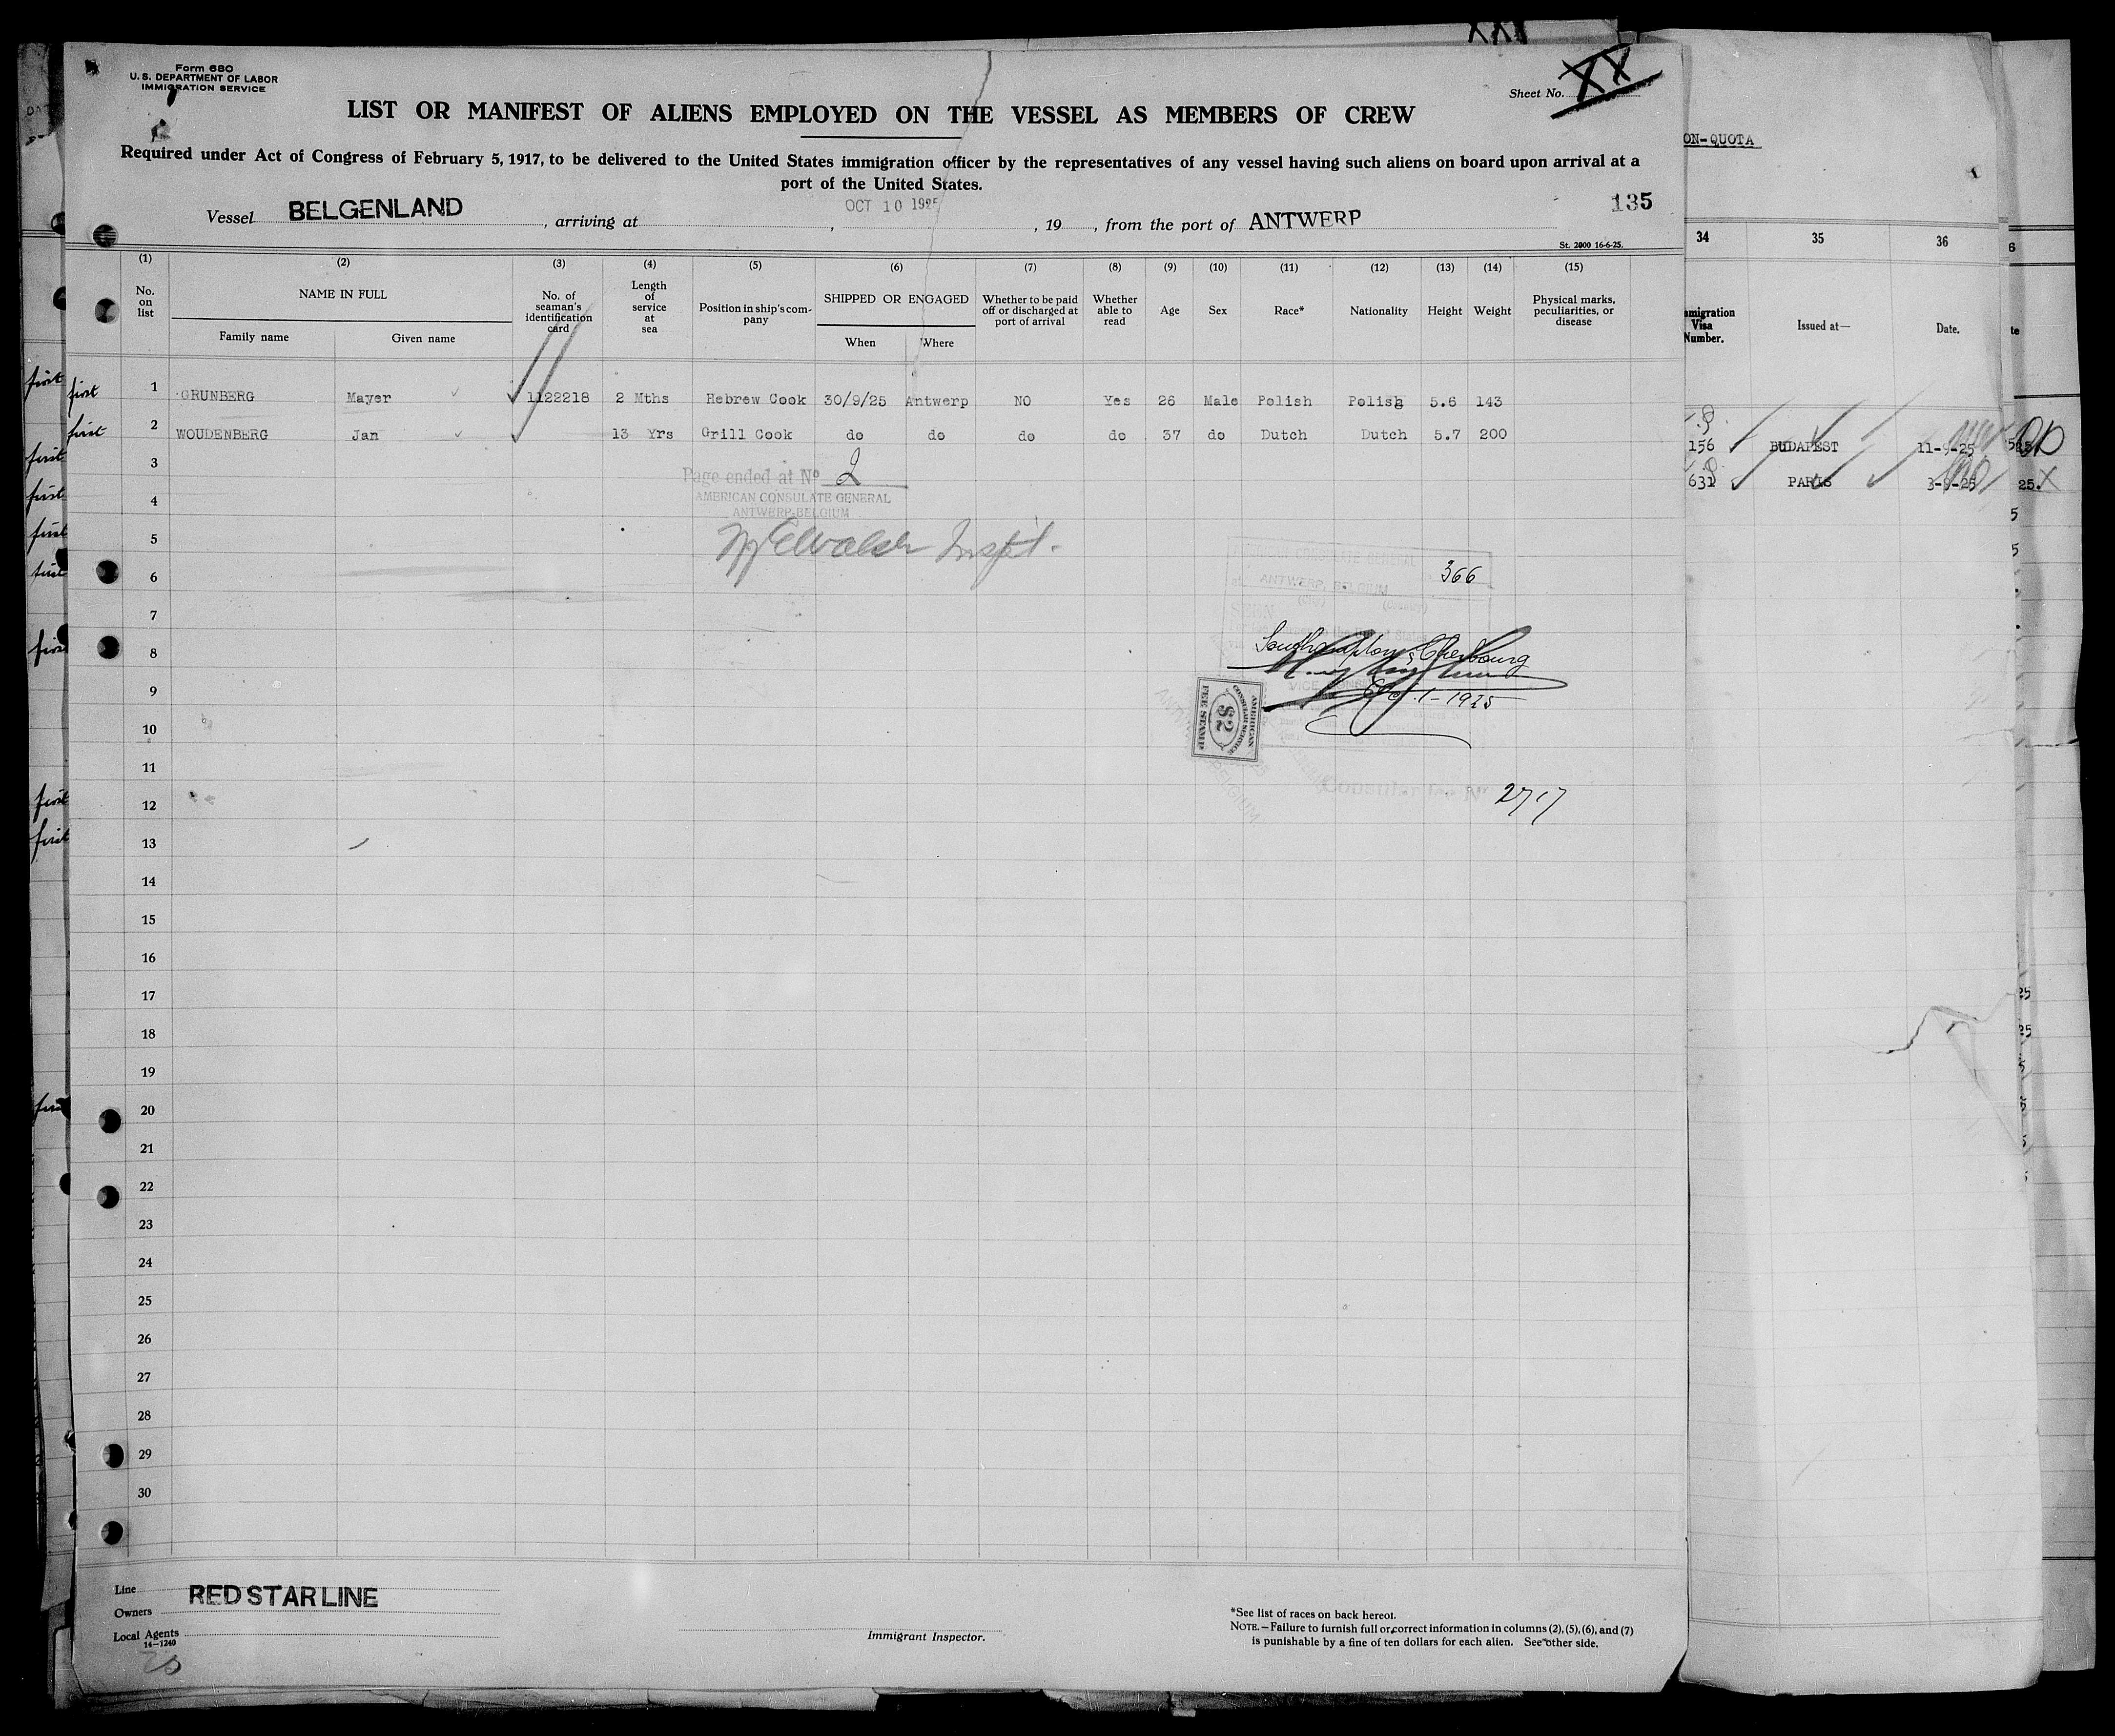 Form 680
U. S. DEPARTMENT OF LABOR
IMMIGRATION SERVICE
Sheet No. XX
LIST OR MANIFEST OF ALIENS EMPLOYED ON THE VESSEL AS MEMBERS OF CREW
Required under Act of Congress of February 5, 1917, to be delivered to the United States immigration officer by the representatives of any vessel having such aliens on board upon arrival at a
port of the United States.
OCT 10 1925
135
Vessel BELGENLAND, arriving at , , 19 , from the port of ANTWERP
St. 2000 16-6-25.
(1) (2) (3) (4) (5) (6) (7) (8) (9) (10) (11) (12) (13) (14) (15)
No. on list
NAME IN FULL
Family name
Given name
No. of seaman's identification card
Length of service at sea
Position in ship's company
SHIPPED OR ENGAGED
When
Where
Whether to be paid off or discharged at port of arrival
Whether able to read
Age
Sex
Race*
Nationality
Height
Weight
Physical marks, peculiarities, or disease
first 1 GRUNBERG Mayer 1122218 2 Mths Hebrew Cook 30/9/25 Antwerp NO Yes 26 Male Polish Polish 5.6 143
first 2 WOUDENBERG Jan 13 Yrs Grill Cook do do do do 37 do Dutch Dutch 5.7 200
3
Page ended at No 2
4
AMERICAN CONSULATE GENERAL
ANTWERP-BELGIUM
5
Inspt.
6
366
ANTWERP, BELGIUM
(City) (Country)
7
SEEN
8
Southampton & Cherbourg
9
Oct. 1-1925
AMERICAN
CONSULAR SERVICE
$2
FEE STAMP
10
11
Consular
12
2717
13
14
15
16
17
18
19
20
21
22
23
24
25
26
27
28
29
30
Line RED STAR LINE
Owners
Local Agents
14-1240
Immigrant Inspector.
*See list of races on back hereof.
NOTE.—Failure to furnish full or correct information in columns (2), (5), (6), and (7)
is punishable by a fine of ten dollars for each alien. See other side.
ON-QUOTA
34 35 36
mmigration Visa Number.
Issued at—
Date.
156 BUDAPEST
631 PARIS
first
first
first
first
first
first
first
first